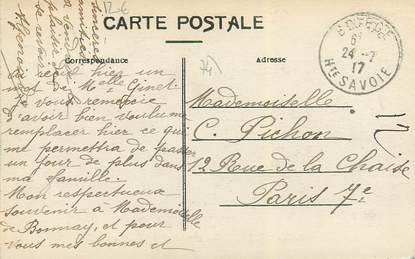 12-6
CARTE POSTALE
Correspondance
Adresse
6
24 - 7
17
Hte SAVOIE
74
reçois hier un
mot de Melle Ginet
vous remercie
d'avoir bien voulu me
remplacer hier ce qui
me permettra de passer
un jour de plus dans
ma famille.
Mon respectueux
souvenir à Mademoiselle
de Bonnay, et pour
vous mes bonnes et
Mademoiselle
C. Pichon
12 Rue de la Chaise
Paris 7e